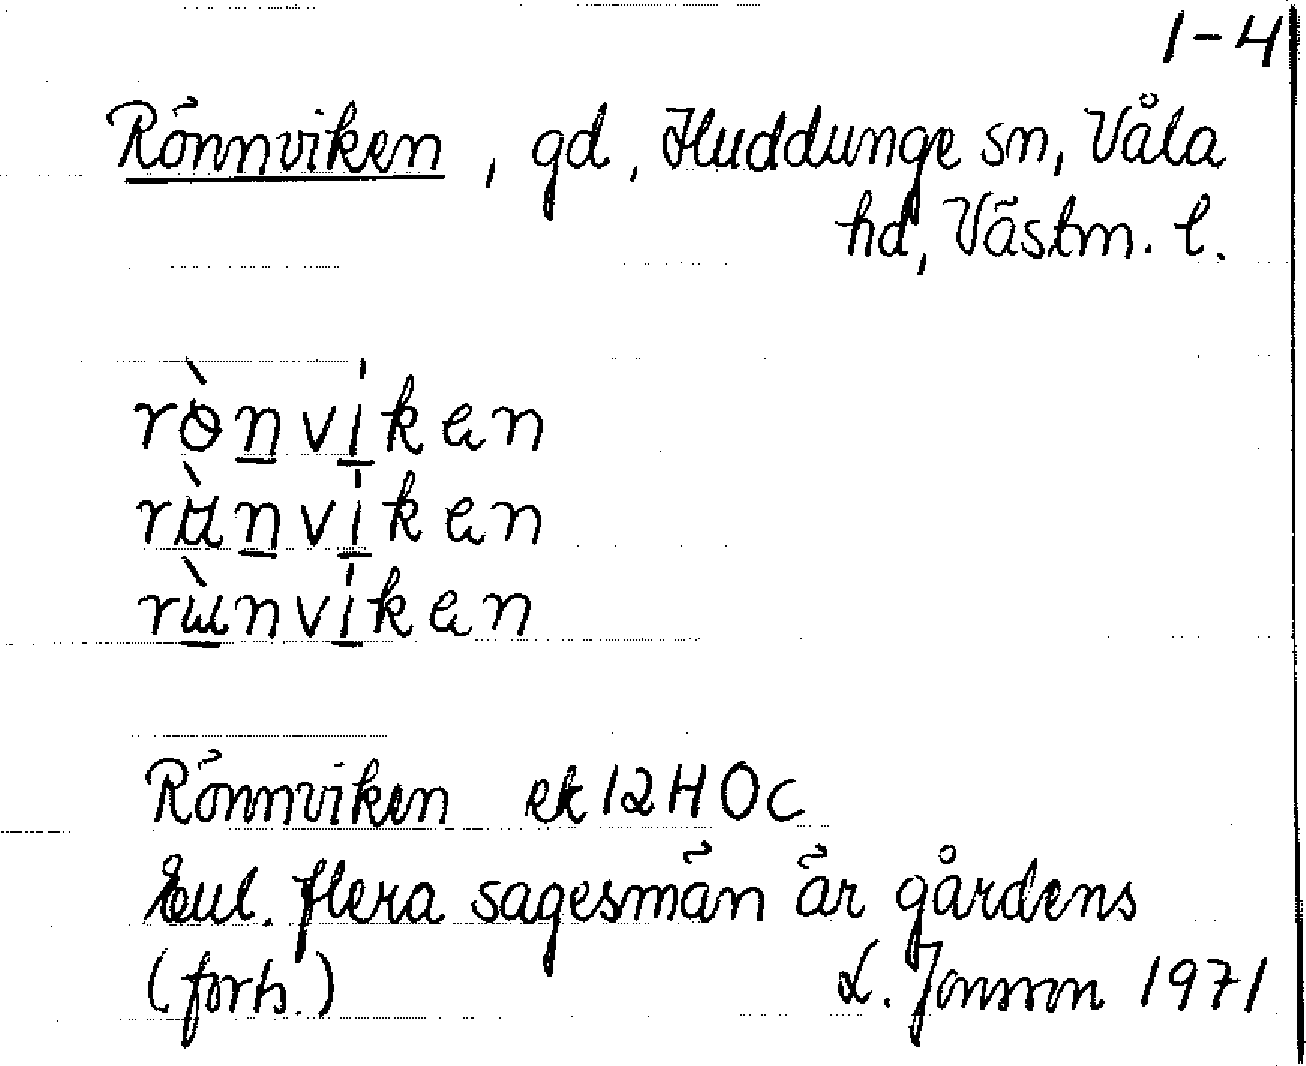 1-4
Rönnviken, gd, Huddunge sn, Våla
hd, Västm. l.
rɵ̀n̲vi̲ken
rʉ̀n̲vi̲ken
rù̲nvi̲ken
Rönnviken ek 12H0c
Enl. flera sagesmän är gårdens
(forts.) L. Jonsson 1971